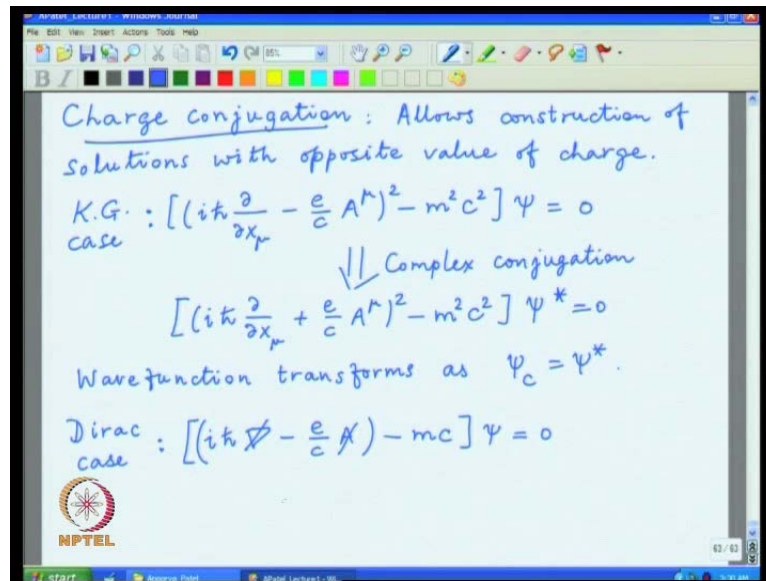 APatel_Lecture1 - Windows Journal
File Edit View Insert Actions Tools Help
85%
B I
Charge conjugation : Allows construction of
solutions with opposite value of charge.
K.G. case : [(iħ ∂/∂x_μ - e/c A^μ)² - m²c²] Ψ = 0
⇓ Complex conjugation
[(iħ ∂/∂x_μ + e/c A^μ)² - m²c²] Ψ* = 0
Wavefunction transforms as Ψ_c = Ψ*.
Dirac case : [(iħ ∇̸ - e/c A̸) - mc] Ψ = 0
NPTEL
63/63
start Apoorva Patel APatel_Lecture1 - Wi...